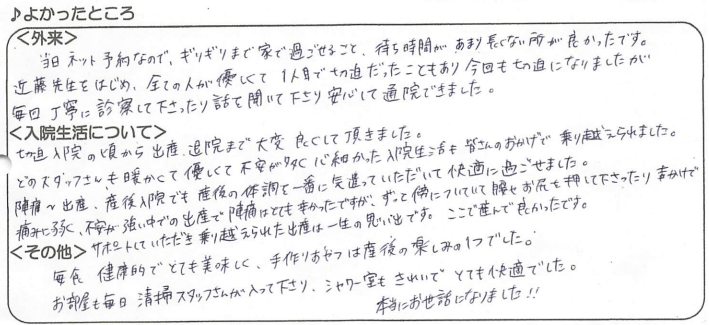 ♪よかったところ
<外来>
当日ネット予約なので、ギリギリまで家で過ごせること、待ち時間があまり長くない所が良かったです。
近藤先生をはじめ、全ての人が優しくて1人目で切迫だったこともあり今回も切迫になりましたが
毎回丁寧に診察して下さったり話を聞いて下さり安心して通院できました。
<入院生活について>
切迫入院の頃から出産、退院まで大変良くして頂きました。
どのスタッフさんも暖かくて優しくて不安が多く心細かった入院生活も皆さんのおかげで乗り越えられました。
陣痛〜出産、産後入院でも産後の体調を一番に気遣っていただいて快適に過ごせました。
痛みに弱く、不安が強い中での出産で陣痛はとても辛かったですが、ずっと傍についていて腰やお尻を押して下さったり声かけで
サポートしていただき乗り越えられた出産は一生の思い出です。ここで産んで良かったです。
<その他>
毎食 健康的でとても美味しく、手作りおやつは産後の楽しみの1つでした。
お部屋も毎日 清掃スタッフさんが入って下さり、シャワー室もきれいでとても快適でした。
本当にお世話になりました!!